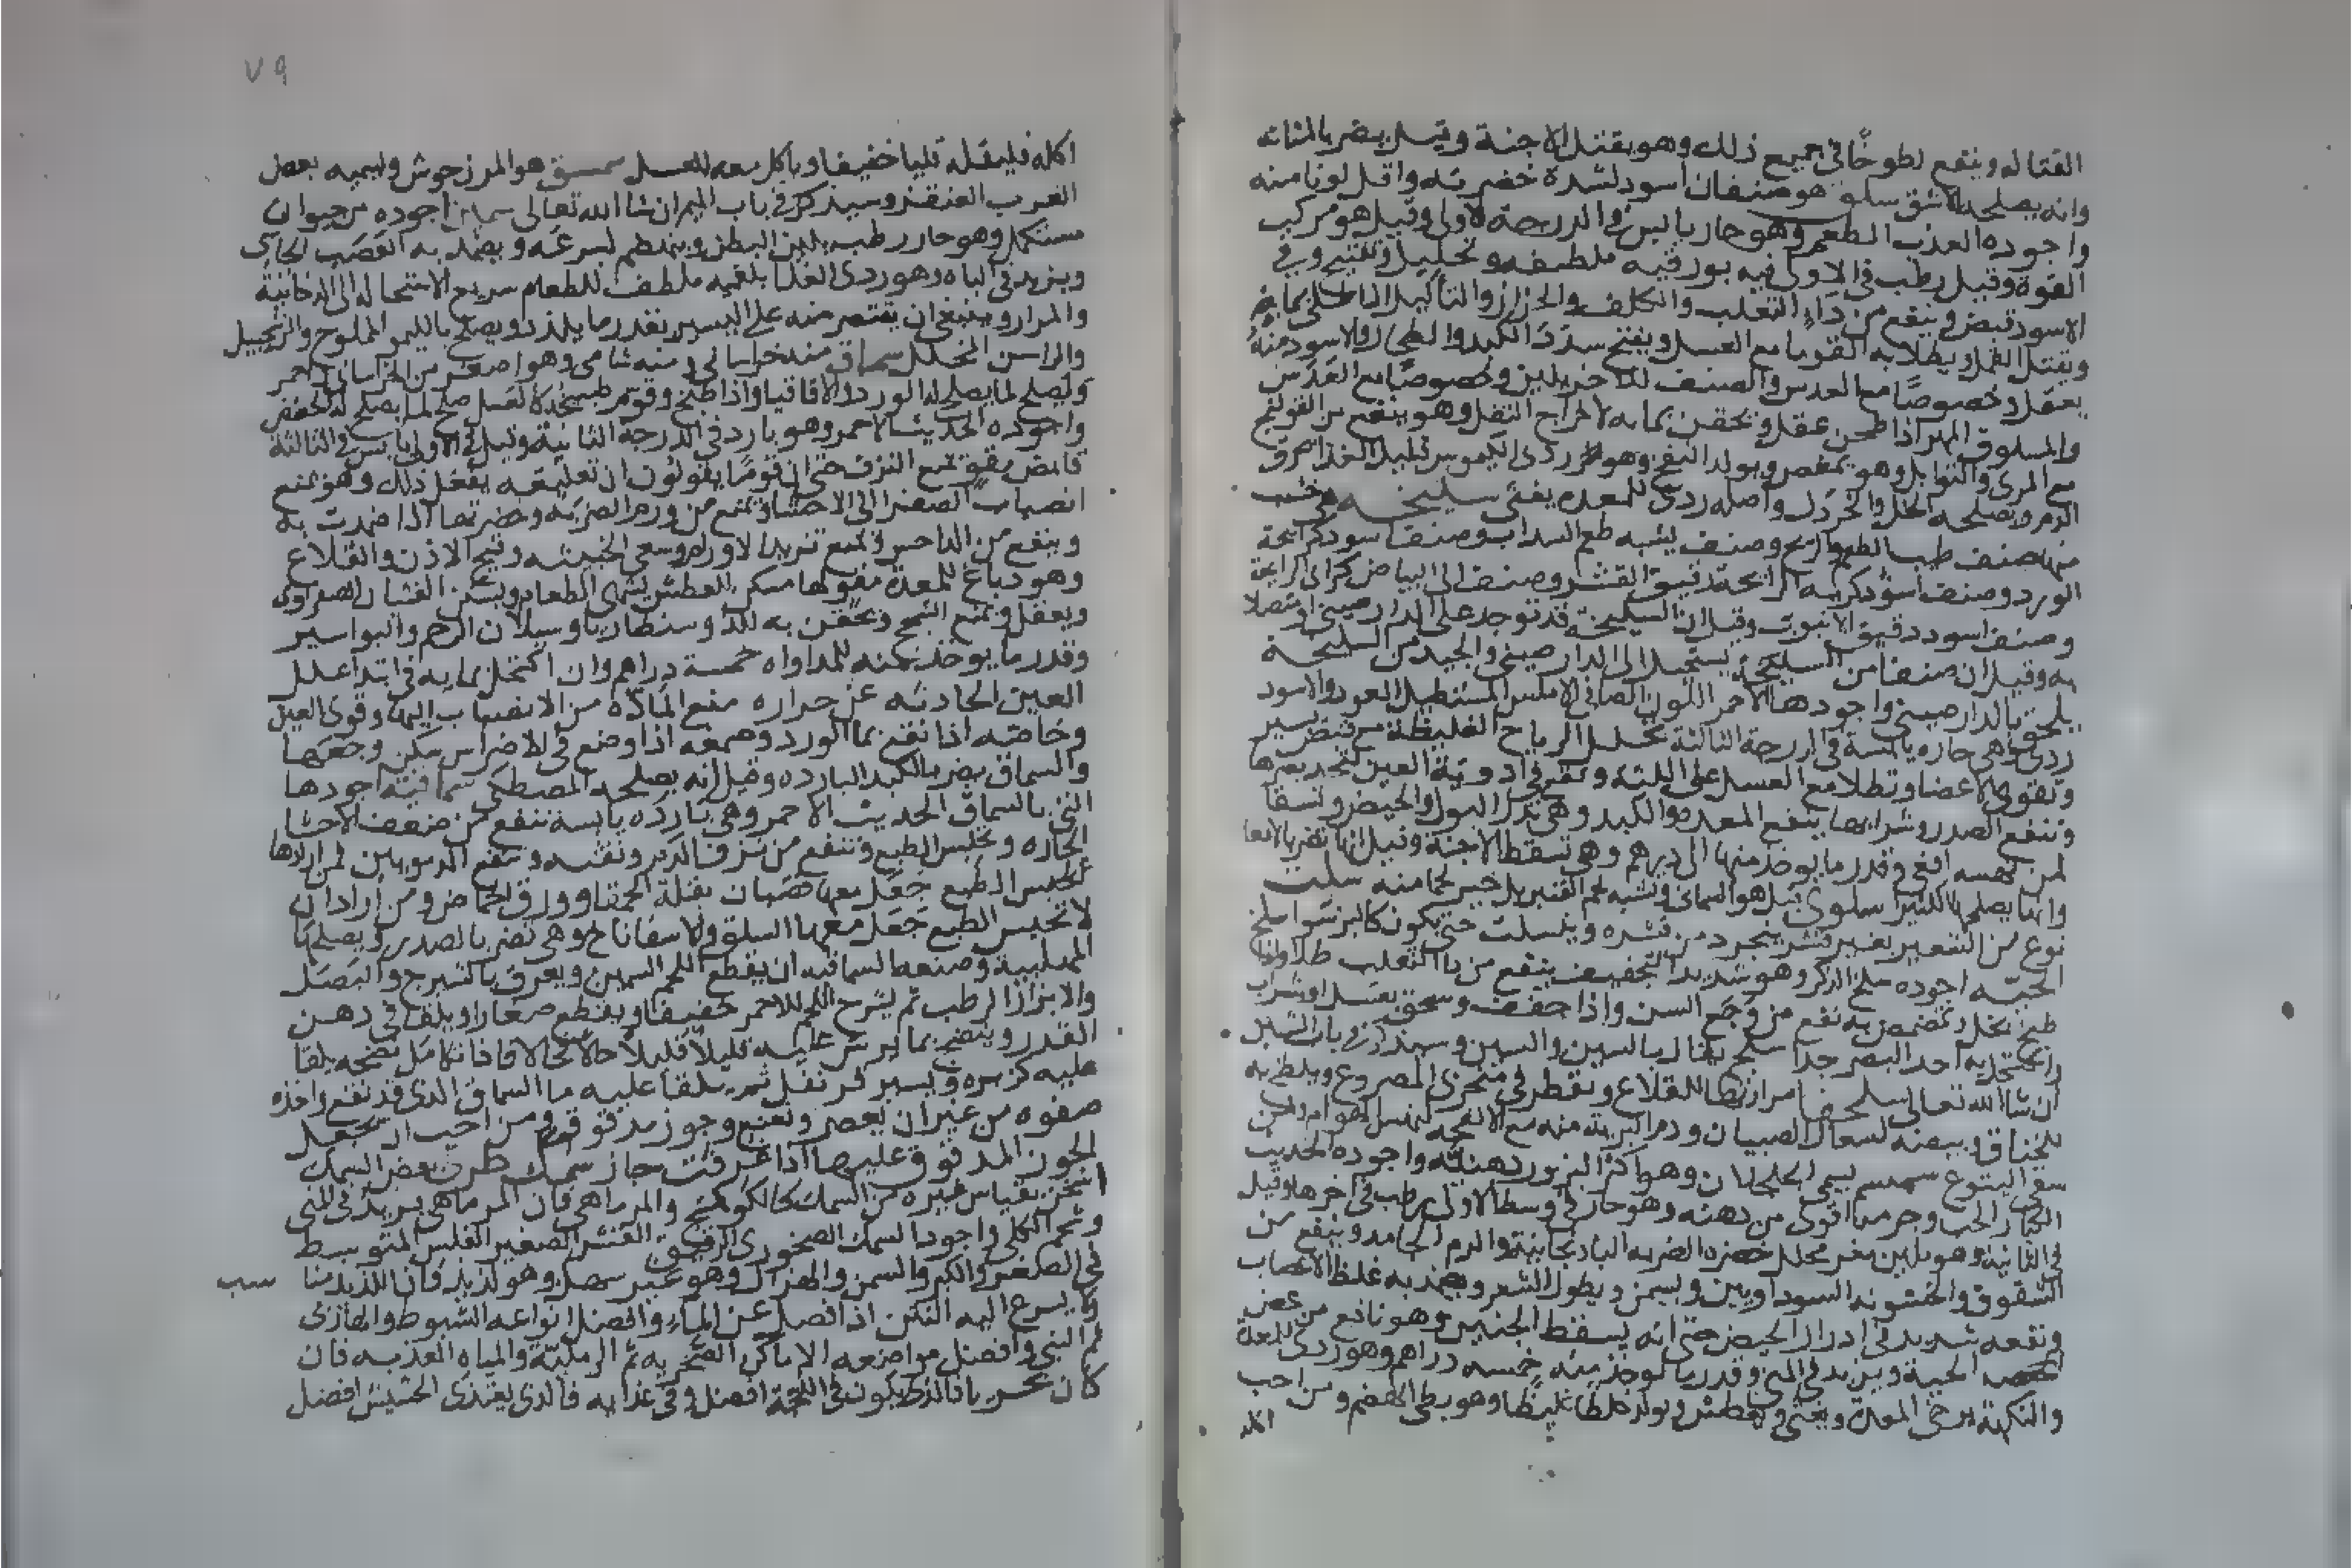 القتاله وينفع لطوخًا في جميع ذلك وهو يقتل الاجنة وقيل يضر بالمثانه
وانه يصلحه الاشق سلق هو صنفان اسود لشدة خضرته واقل لونا منه
واجوده العذب الطعم وهو حار يابس في الدرجة الاولى وقيل هو مركب
القوة وقيل رطب في الاولى فيه بورقيه ملطفه وتحليل وتفتيح وفي
الاسود قبض وينفع من داء الثعلب والكلف والحزاز والثآليل اذا طلي بمايه
ويقتل القمل ويطلا به القوبا مع العسل ويفتح سدد الكبد والطحال والاسود منه
يعقل وخصوصًا مع العدس والصنف الاخر يلين وخصوصًا مع العدس
والمسلوق المهرا اذا طحن عقل وتحقن بمايه لاخراج الثفل وهو ينفع من القولنج
مع المري والتوابل وهو يمغص ويولد النفخ وهو ردي الكيموس قليل الغذا يحرق
الدم ويصلحه الخل والخردل واصله ردي للمعده يغثى سليخه هي خشب
منها صنف طيب الطعم والريح وصنف يشبه طعم السداب وصنف اسود كرائحة
الورد وصنف اسود كريه الرائحة رقيق القشر وصنف الى البياض كراثي الرائحة
وصنف اسود دقيق الانبوب وقيل ان السليخة قد توجد على الدارصيني متصلا
به وقيل ان صنفا من السليخة يستحيل الى الدارصيني والجيد من السليخة
يلحق بالدارصيني واجودها الاحمر اللون الصافي الاملس المستطيل العود والاسود
ردي وهي حاره يابسة في الدرجة الثالثة تحلل الرياح الغليظة مع قبض يسير
وتقوي الاعضا وتطلا مع العسل على اللثه وتقع في ادوية العين لتحديدها
وتنفع الصدر وشرابها ينفع المعده والكبد وهي تدر البول والحيض وتسقا
لمن نهسه افعى وقدر ما يوخذ منها الى درهم وهي تسقط الاجنة وقيل انها تضر بالامعا
وانها يصلحها الكثيرا سلوى قيل هو السمانى ويشبه لحم القنبر بل خير لحما منه سلت
نوع من الشعير بغير قشر ينجرد من قشره وينسلت حتى يكون كالبر سوا سلخ
الحيّه اجوده سلخ الذكر وهو شديد التجفيف ينفع من داء الثعلب طلا واذا
طبخ بخل وتمضمض به نفع من وجع السن واذا جفف وسحق بعسل او شراب
واكتحل به احد البصر جدا سلجم يقال بالسين والشين وسيذكر في باب الشين
ان شا الله تعالى سلحفا مرارتها للقلاع وتقطر في منخري المصروع ويلطخ به
للخناق وبيضه لسعال الصبيان ودم البرية منه مع الانفحه لنهس الهوام ولمن
سقي اليتوع سمسم يسمى الجلجلان وهو اكثر البزور دهنيّه واجوده الحديث
الكبار الحب وجرمه اقوى من دهنه وهو حار في وسط الاولى رطب في اخرها وقيل
في الثانيه وهو ملين مغر محلل خضره الضربه الباذنجانية والدم الجامد وينفع من
الشقوق والخشونه السوداويين ويسمن ويطول الشعر ويضمد به غلظ الاعصاب
ونفعه شديد في ادرار الحيض حتى انه يسقط الجنين وهو نافع من عض
الحية ويزيد في المني وقدر ما يوخذ منه خمسه دراهم وهو ردي للمعدة
والنكهة يرخي المعدة ويغثي ويعطش ويولد خلطا غليظا وهو بطي الهضم ومن احب
اكله
٧٩
اكله فليقله قليا خفيفا وياكل معه للعسل سمسق هو المرزجوش ويسميه بعض
العرب العنقز وسيذكر في باب الميم ان شا الله تعالى سمان اجوده من حيوان
مستكمل وهو حار رطب يلين البطن وينهضم لسرعه ويضمد به العصب الجاسي
ويزيد في الباه وهو ردي الغذا بلغميه ملطف للطعام سريع الاستحاله الى الدخانية
والمرار وينبغي ان يقتصر منه على اليسير بقدر ما يلذذ ويصلح بالليمو المملوح والزنجبيل
والراسن المخلل سماق منه خراساني ومنه شامي وهو اصغر من الخراساني احمر
ويصلح لما يصلح له الورد والاقاقيا واذا طبخ وقوم طبيخه كالعسل صلح لما يصلح له الحضض
واجوده الحديث الاحمر وهو بارد في الدرجة الثانية وقيل في الاولى يابس في الثالثة
قابض يقوي يمنع النزف حتى ان قومًا يقولون ان تعليقه يفعل ذلك وهو يمنع
انصباب الصفرا الى الاحشا ويمنع من ورم الضربه وخضرتها اذا ضمدت به
وينفع من الداحس ويمنع تزيد الاورام وسعي الخبيثه وقيح الاذن والقلاع
وهو دباغ للمعدة مقوها مسكن للعطش يشهي الطعام ويسكن الغشيان الصفراوي
ويعقل ويمنع السحج ويحقن به للدوسنطاريا وسيلان الرحم والبواسير
وقدر ما يوخذ منه للمداواه خمسة دراهم وان اكتحل بمايه في ابتدا علل
العين الحادثه عن حراره منع المادّة من الانصباب اليها وقوى العين
وخاصته اذا نقع بما الورد وصمغه اذا وضع في الاضراس سكن وجعها
والسماق يضر بالكبد البارده وقيل انه يصلحه المصطكي سماقية اجودها
التي بالسماق الحديث الاحمر وهي بارده يابسة تنفع من ضعف الاحشا
الحاره وتحبس الطبع وتنفع من نزف الدم ونفثه وتنفع الدمويين لمن ارادها
لحبس الطبع جعل معها قضبان بقلة الحمقا وورق الحماض ومن اراد ان
لا تحبس الطبع جعل معها السلق والاسفاناخ وهي تضر بالصدر ويصلحها
المهلبية وصنعه السماقيه ان يقطع اللحم السمين ويعرق بالشيرج والبصل
والابزار الرطب ثم يشرح اللحم الاحمر خفيفا ويقطع صغارا ويلقا في دهن
القدر وينضج بما يرش عليه قليلا قليلا حالا بحالا فاذا تكامل نضجه يلقا
عليه كزبره ويسير قرنفل ثم يلقا عليه ما السماق الذي قد نقع واخذ
صفوه من غير ان يعصر ونعنع وجوز مدقوق ومن احب ان يجعل
الجوز المدقوق عليها اذا غرفت جاز سمك طري بعض السمك
اسخن بقياس غيره من السمك كالكوسج والمرماهي فان المرماهي يزيد في المني
وشحم الكلى واجود السمك الصخوري الرقيق القشر الصغير الفلس المتوسط
في الصغر والكبر والسمن والهزال وهو غير سهك وهو لذيذ فان اللذيذ مناسب
ولا يسرع اليه النتن اذا فصل عن الماء وافضل انواعه الشبوط والهازبى
ثم البني وافضل مواضعه الاماكن الصخريه ثم الرمليّة والمياه العذبه فان
كان بحريا فالذي يكون في اللجة افضل وفي غذايه فالذي يغتذي الحشيش افضل